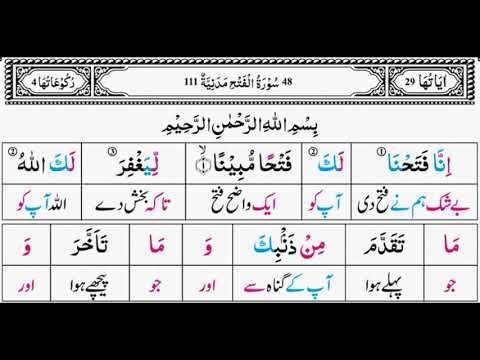 اٰیَاتُهَا 29 48 سُوْرَةُ الْفَتْحِ مَدَنِیَّةٌ 111 رُکُوْعَاتُهَا 4
بِسْمِ اللّٰهِ الرَّحْمٰنِ الرَّحِیْمِ
اِنَّا فَتَحْنَا ① لَكَ ② فَتْحًا مُّبِیْنًا ۙ﴿۱﴾ لِّیَغْفِرَ ③ لَكَ اللّٰهُ ②
بے شک ہم نے فتح دی آپ کو ایک واضح فتح تاکہ بخش دے اللہ آپ کو
مَا تَقَدَّمَ مِنْ ذَنْۢبِكَ وَ مَا تَاَخَّرَ وَ
جو پہلے ہوا آپ کے گناہ سے اور جو پیچھے ہوا اور